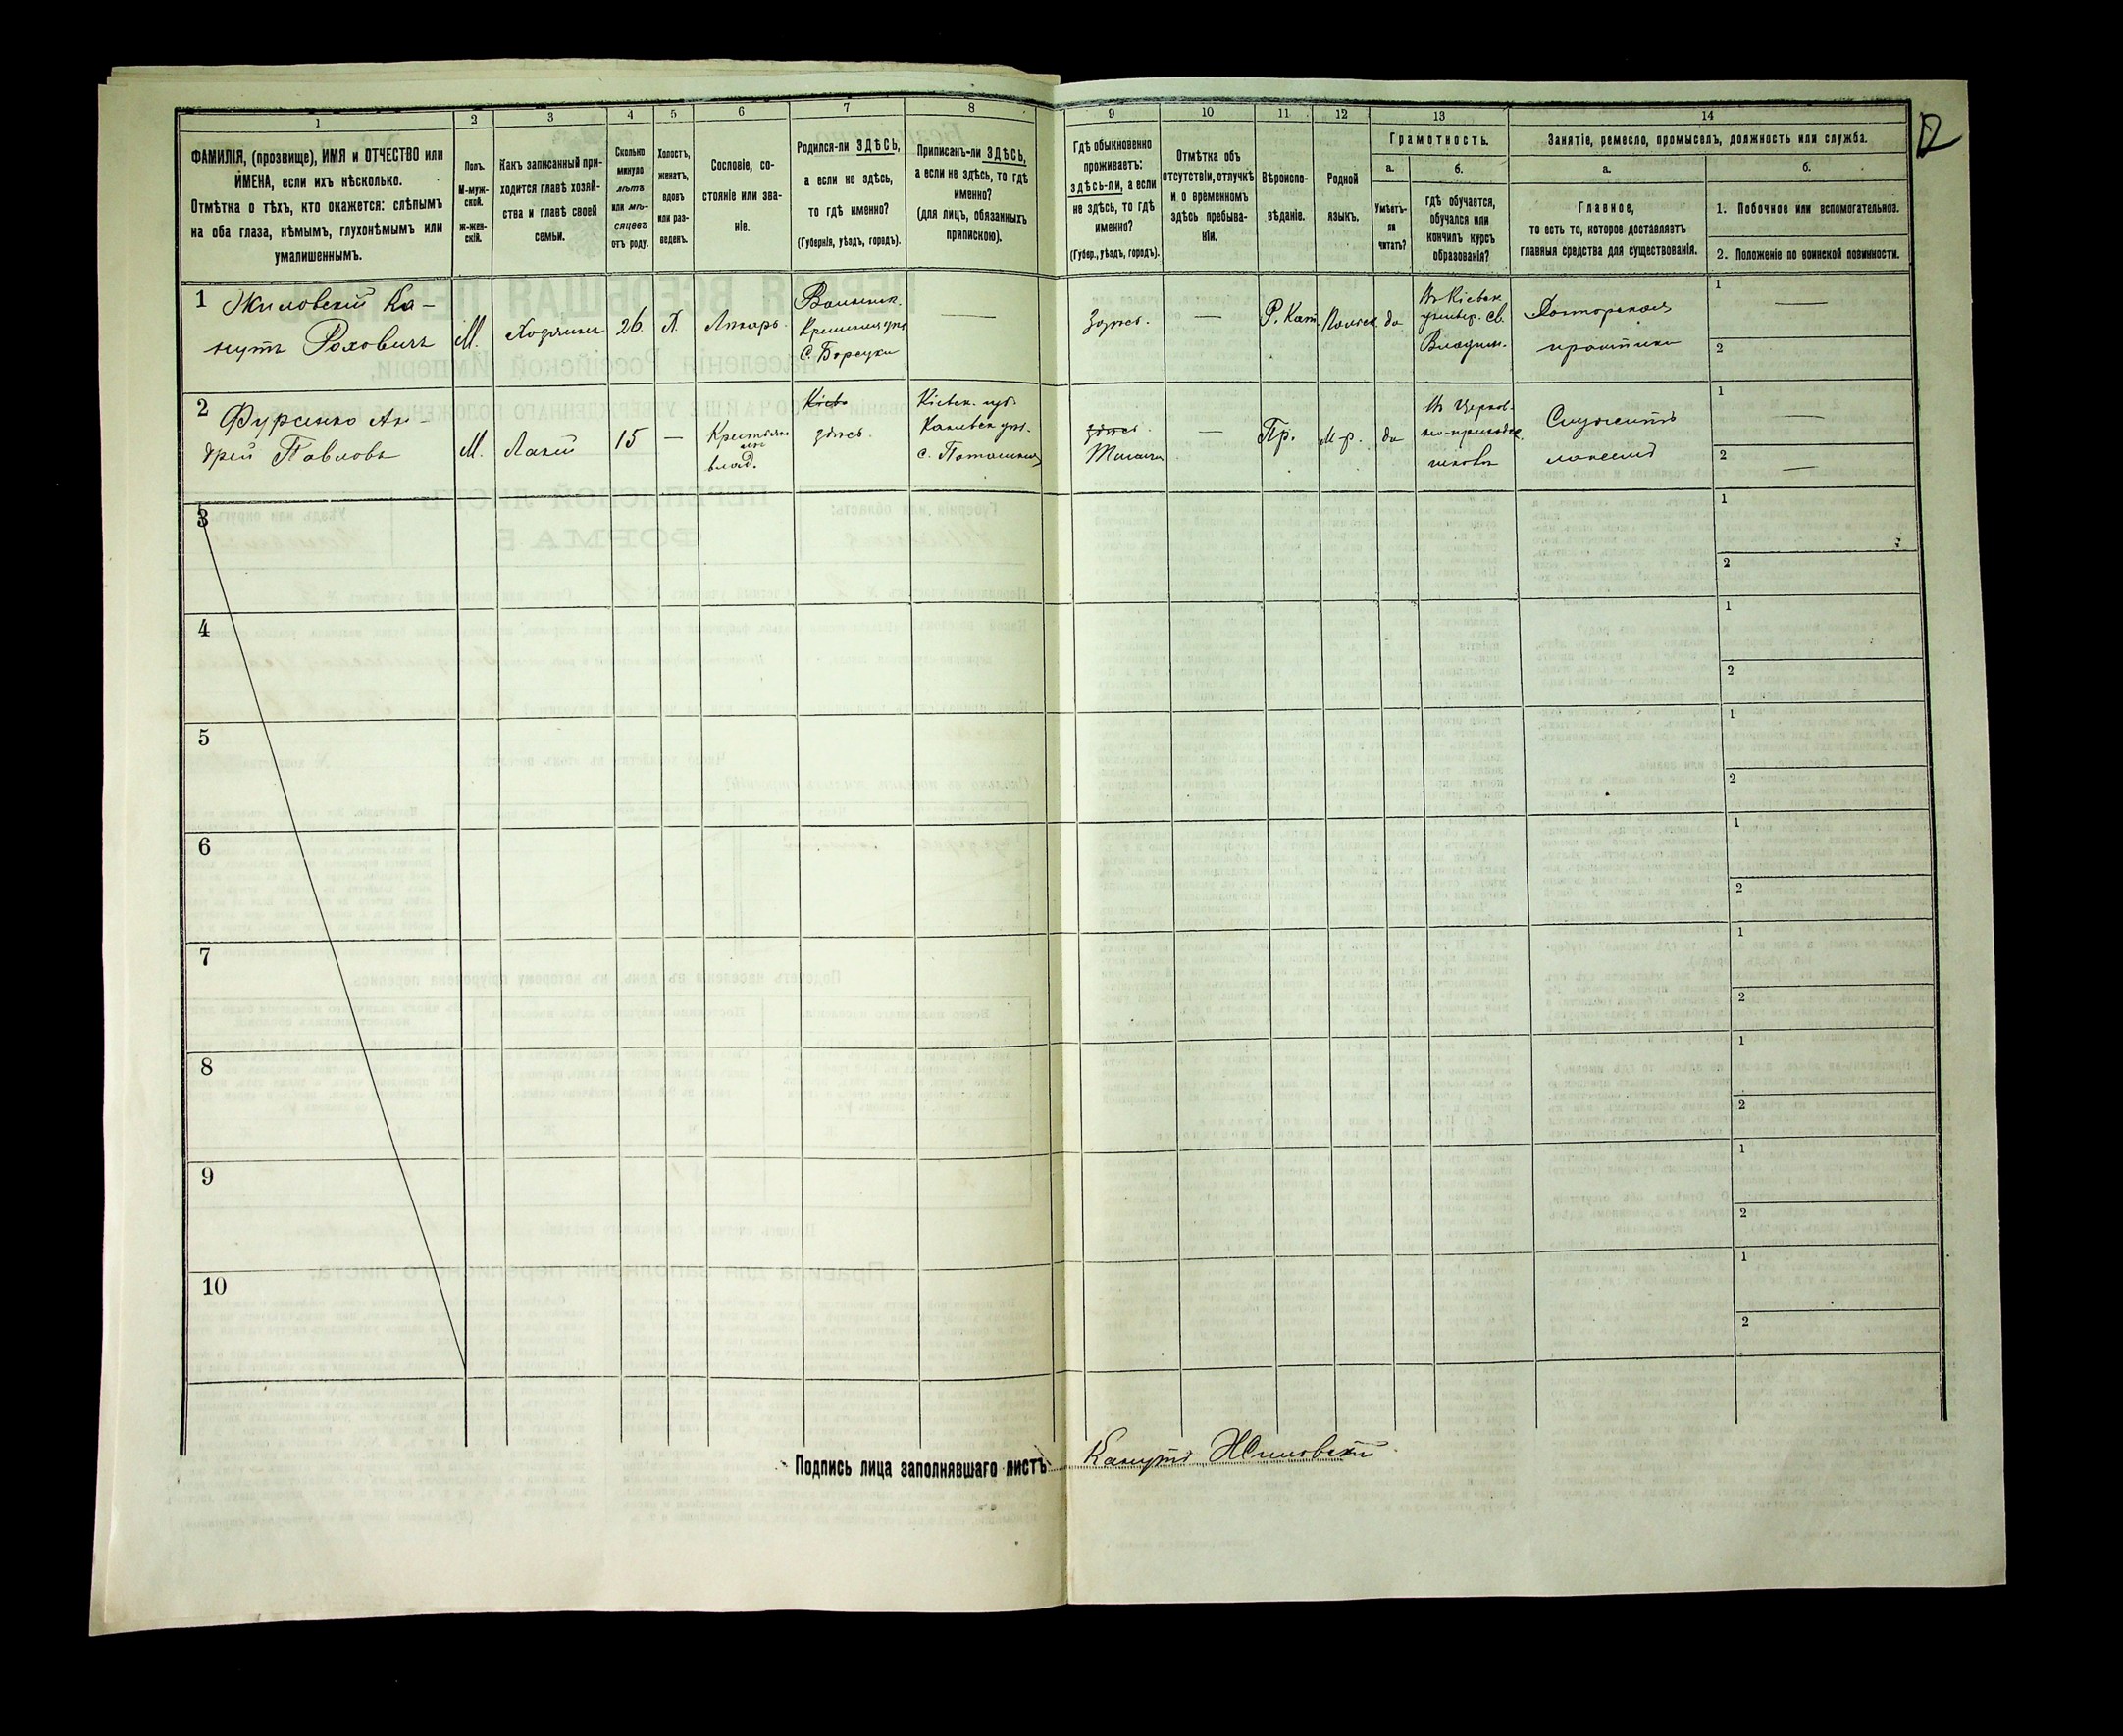 1 2 3 4 5 6 7 8 9 10 11 12 13 14
ФАМИЛІЯ, (прозвище), ИМЯ и ОТЧЕСТВО или
ИМЕНА, если ихъ нѣсколько.
Отмѣтка о тѣхъ, кто окажется: слѣпымъ
на оба глаза, нѣмымъ, глухонѣмымъ или
умалишеннымъ.
Полъ.
М-муж-
ской.
ж-жен-
скій.
Какъ записанный при-
ходится главѣ хозяй-
ства и главѣ своей
семьи.
Сколько
минуло
лѣтъ
или мѣ-
сяцевъ
отъ роду.
Холостъ,
женатъ,
вдовъ
или раз-
веденъ.
Сословіе, со-
стояніе или зва-
ніе.
Родился-ли ЗДѢСЬ,
а если не здѣсь,
то гдѣ именно?
(Губернія, уѣздъ, городъ).
Приписанъ-ли ЗДѢСЬ,
а если не здѣсь, то гдѣ
именно?
(для лицъ, обязанныхъ
припискою).
Гдѣ обыкновенно
проживаетъ:
здѣсь-ли, а если
не здѣсь, то гдѣ
именно?
(Губер., уѣздъ, городъ).
Отмѣтка объ
отсутствіи, отлучкѣ
и о временномъ
здѣсь пребыва-
ніи.
Вѣроиспо-
вѣданіе.
Родной
языкъ.
Грамотность.
а.
Умѣетъ-
ли
читать?
б.
гдѣ обучается,
обучался или
кончилъ курсъ
образованія?
Занятіе, ремесло, промыселъ, должность или служба.
а.
Главное,
то есть то, которое доставляетъ
главныя средства для существованія.
б.
1. Побочное или вспомогательное.
2. Положеніе по воинской повинности.
1
Жиловскій Ка-
нутъ Роховичъ
М.
Хозяинъ
26.
Х.
Лѣкарь.
Волынск.
С. Борецки
Здѣсь.
Р. Кат.
Польск.
да
Въ Кіевск.
универ. св.
Владим.
Докторская
практика
1
2
2
Фурсенко Ан-
дрей Павловъ
М.
Лакей
15
Крестьян
влад.
Кіевъ
здѣсь.
Кіевск. губ.
Каневск. уѣз.
здѣсь.
Пр.
М-р.
да
Въ Церков-
но-приходс.
школѣ
Служитъ
лакеемъ
1
2
3
1
2
4
1
2
5
1
2
6
1
2
7
1
2
8
1
2
9
1
2
10
1
2
Подпись лица заполнявшаго листъ
Канутъ Жиловскій